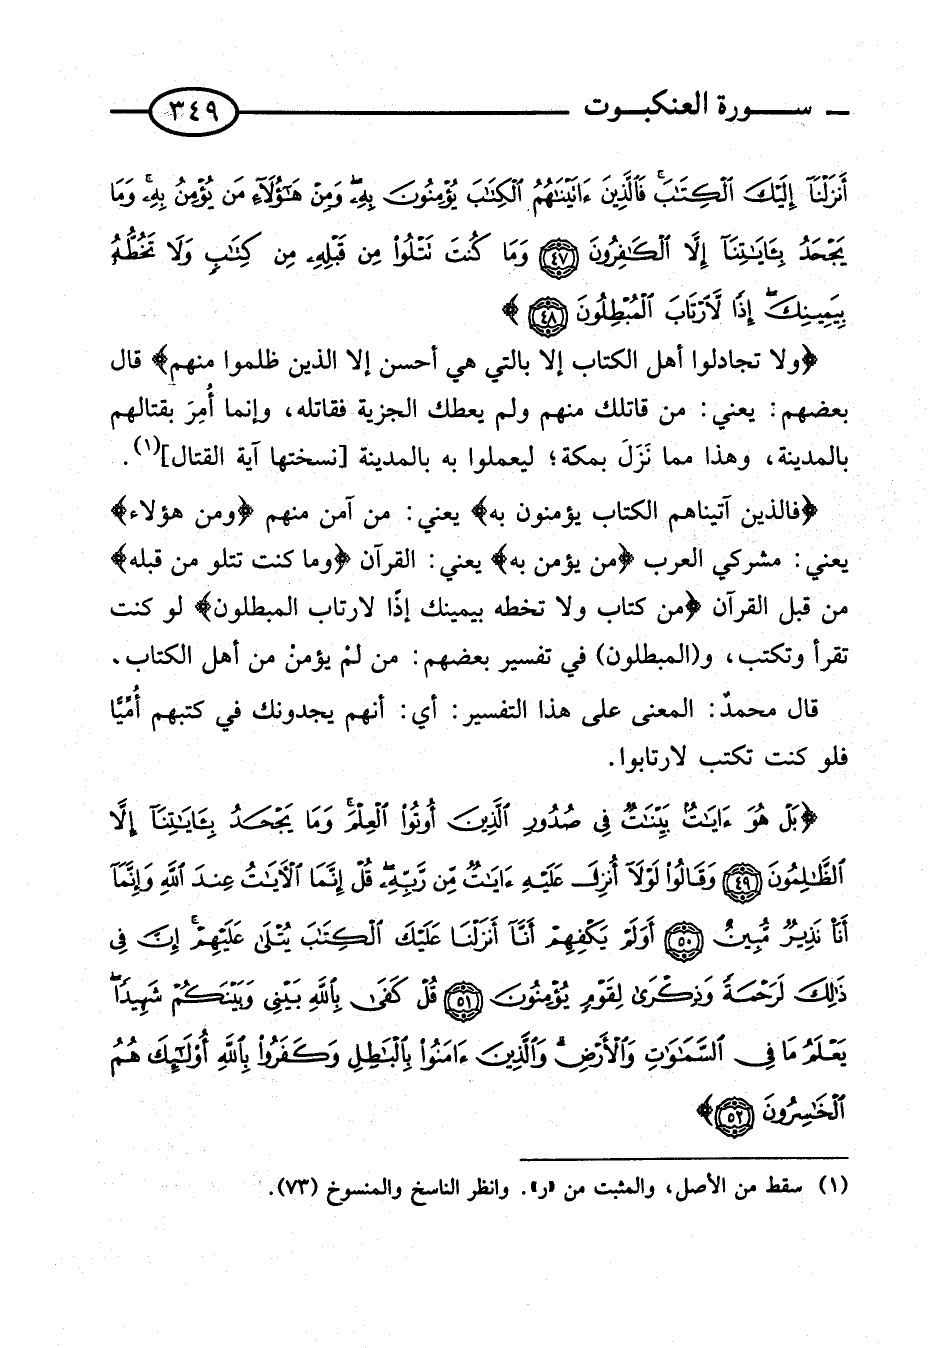 سورة العنكبوت ٣٤٩
أَنزَلْنَآ إِلَيْكَ ٱلْكِتَٰبَ ۚ فَٱلَّذِينَ ءَاتَيْنَٰهُمُ ٱلْكِتَٰبَ يُؤْمِنُونَ بِهِۦ ۖ وَمِنْ هَٰٓؤُلَآءِ مَن يُؤْمِنُ بِهِۦ ۚ وَمَا
يَجْحَدُ بِـَٔايَٰتِنَآ إِلَّا ٱلْكَٰفِرُونَ ٤٧ وَمَا كُنتَ تَتْلُوا۟ مِن قَبْلِهِۦ مِن كِتَٰبٍ وَلَا تَخُطُّهُۥ
بِيَمِينِكَ ۖ إِذًا لَّٱرْتَابَ ٱلْمُبْطِلُونَ ٤٨ ﴾
﴿ولا تجادلوا أهل الكتاب إلا بالتي هي أحسن إلا الذين ظلموا منهم﴾ قال
بعضهم: يعني: من قاتلك منهم ولم يعطك الجزية فقاتله، وإنما أُمِرَ بقتالهم
بالمدينة، وهذا مما نَزَلَ بمكة؛ ليعملوا به بالمدينة [نسختها آية القتال](١).
﴿فالذين آتيناهم الكتاب يؤمنون به﴾ يعني: من آمن منهم ﴿ومن هؤلاء﴾
يعني: مشركي العرب ﴿من يؤمن به﴾ يعني: القرآن ﴿وما كنت تتلو من قبله﴾
من قبل القرآن ﴿من كتاب ولا تخطه بيمينك إذًا لارتاب المبطلون﴾ لو كنت
تقرأ وتكتب، و(المبطلون) في تفسير بعضهم: من لمْ يؤمنْ من أهل الكتاب.
قال محمدٌ: المعنى على هذا التفسير: أي: أنهم يجدونك في كتبهم أُمِّيًّا
فلو كنت تكتب لارتابوا.
﴿بَلْ هُوَ ءَايَٰتٌۢ بَيِّنَٰتٌ فِى صُدُورِ ٱلَّذِينَ أُوتُوا۟ ٱلْعِلْمَ ۚ وَمَا يَجْحَدُ بِـَٔايَٰتِنَآ إِلَّا
ٱلظَّٰلِمُونَ ٤٩ وَقَالُوا۟ لَوْلَآ أُنزِلَ عَلَيْهِ ءَايَٰتٌ مِّن رَّبِّهِۦ ۖ قُلْ إِنَّمَا ٱلْـَٔايَٰتُ عِندَ ٱللَّهِ وَإِنَّمَآ
أَنَا۠ نَذِيرٌ مُّبِينٌ ٥٠ أَوَلَمْ يَكْفِهِمْ أَنَّآ أَنزَلْنَا عَلَيْكَ ٱلْكِتَٰبَ يُتْلَىٰ عَلَيْهِمْ ۚ إِنَّ فِى
ذَٰلِكَ لَرَحْمَةً وَذِكْرَىٰ لِقَوْمٍ يُؤْمِنُونَ ٥١ قُلْ كَفَىٰ بِٱللَّهِ بَيْنِى وَبَيْنَكُمْ شَهِيدًا ۖ
يَعْلَمُ مَا فِى ٱلسَّمَٰوَٰتِ وَٱلْأَرْضِ ۗ وَٱلَّذِينَ ءَامَنُوا۟ بِٱلْبَٰطِلِ وَكَفَرُوا۟ بِٱللَّهِ أُو۟لَٰٓئِكَ هُمُ
ٱلْخَٰسِرُونَ ٥٢﴾
(١) سقط من الأصل، والمثبت من «ر». وانظر الناسخ والمنسوخ (٧٣).